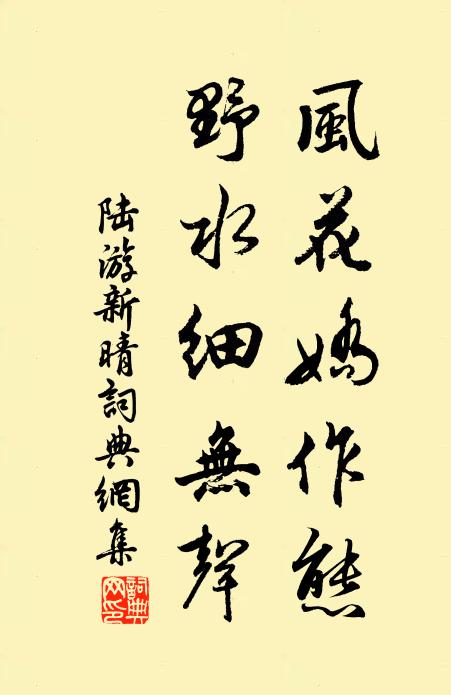 風花嬌作態
野水細無聲
陸游新晴詞典網集
詞典網印